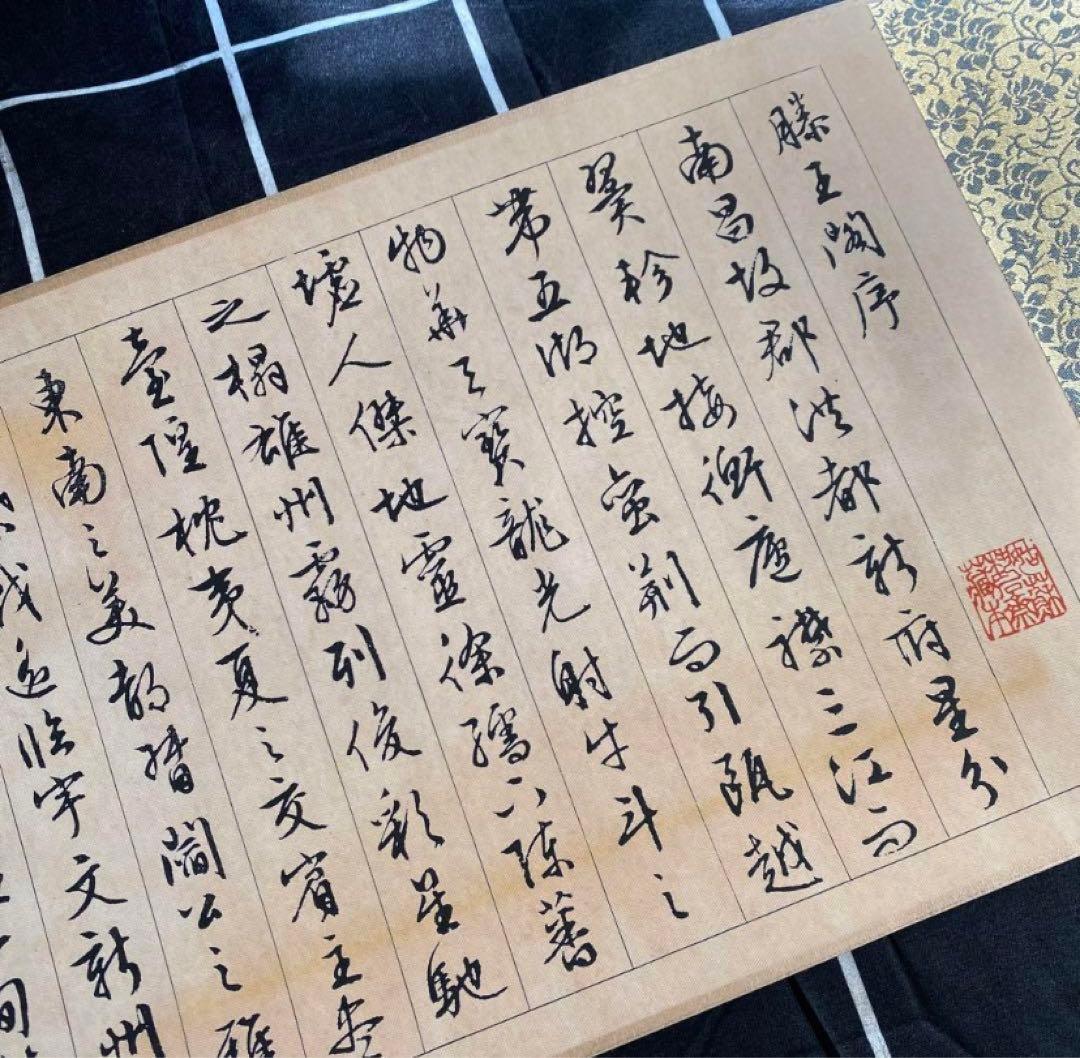 滕王閣序
南昌故郡洪都新府星分
翼軫地接衡廬襟三江而
帶五湖控蠻荊而引甌越
物華天寶龍光射牛斗之
墟人傑地靈徐孺下陳蕃
之榻雄州霧列俊彩星馳
臺隍枕夷夏之交賓主盡
東南之美都督閻公之雅
戟遙臨宇文新州